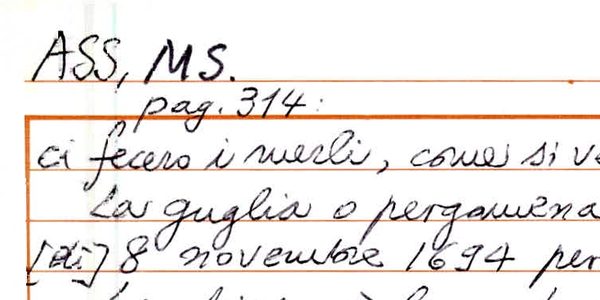 ASS, MS.
pag. 314:
ci fecero i merli, come si v
La guglia o pergamena
[di] 8 novembre 1694 per